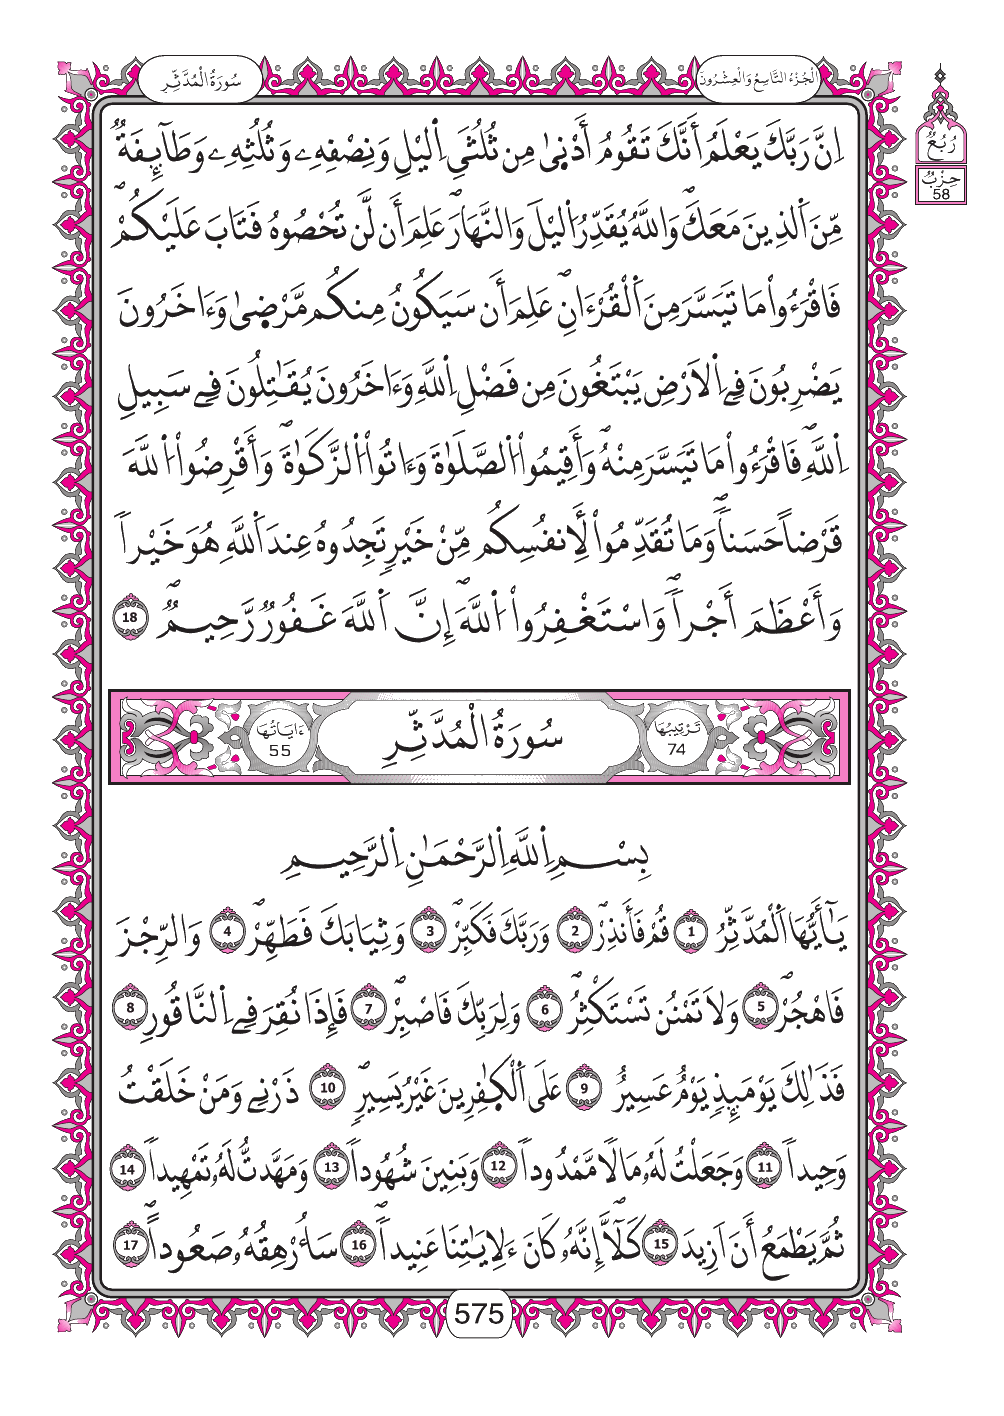 سُورَةُ الْمُدَّثِّرِ
الْجُزْءُ التَّاسِعُ وَالْعِشْرُونَ
رُبْعُ
حِزْبُ
58
اِنَّ رَبَّكَ يَعْلَمُ أَنَّكَ تَقُومُ أَدْنِىٰ مِن ثُلُثَيِ اِ۬ليْلِ وَنِصْفِهِۦ وَثُلُثِهِۦ وَطَآئِفَةٞ
مِّنَ اَ۬لذِينَ مَعَكَۖ وَاللَّهُ يُقَدِّرُ اُ۬ليْلَ وَالنَّهَارَۖ عَلِمَ أَن لَّن تُحْصُوهُ فَتَابَ عَلَيْكُمْۖ
فَاقْرَءُواْ مَا تَيَسَّرَ مِنَ اَ۬لْقُرْءَانِۖ عَلِمَ أَن سَيَكُونُ مِنكُم مَّرْضِىٰ وَءَاخَرُونَ
يَضْرِبُونَ فِے اِ۬لَارْضِ يَبْتَغُونَ مِن فَضْلِ اِ۬للَّهِ وَءَاخَرُونَ يُقَٰتِلُونَ فِے سَبِيلِ
اِ۬للَّهِۖ فَاقْرَءُواْ مَا تَيَسَّرَ مِنْهُۖ وَأَقِيمُواْ اُ۬لصَّلَوٰةَ وَءَاتُواْ اُ۬لزَّكَوٰةَۖ وَأَقْرِضُواْ اُ۬للَّهَ
قَرْضاً حَسَناٗۖ وَمَا تُقَدِّمُواْ لِأَنفُسِكُم مِّنْ خَيْرٖ تَجِدُوهُ عِندَ اَ۬للَّهِ هُوَ خَيْراٗ
وَأَعْظَمَ أَجْراٗۖ وَاسْتَغْفِرُواْ اُ۬للَّهَۖ إِنَّ اَ۬للَّهَ غَفُورٞ رَّحِيمٞۖ 18
تَرْتِيبُهَا 74
سُورَةُ الْمُدَّثِّرِ
ءَايَاتُهَا 55
بِسْمِ اِ۬للَّهِ اِ۬لرَّحْمَٰنِ اِ۬لرَّحِيمِ
يَٰٓأَيُّهَا اَ۬لْمُدَّثِّرُ 1 قُمْ فَأَنذِرْۖ 2 وَرَبَّكَ فَكَبِّرْۖ 3 وَثِيَابَكَ فَطَهِّرْۖ 4 وَالرِّجْزَ
فَاهْجُرْۖ 5 وَلَا تَمْنُن تَسْتَكْثِرُۖ 6 وَلِرَبِّكَ فَاصْبِرْۖ 7 فَإِذَا نُقِرَ فِے اِ۬لنَّاقُورِ 8
فَذَٰلِكَ يَوْمَئِذٖ يَوْمٌ عَسِيرٌ 9 عَلَى اَ۬لْكٰ۪فِرِينَ غَيْرُ يَسِيرٖۖ 10 ذَرْنِے وَمَنْ خَلَقْتُ
وَحِيداٗ 11 وَجَعَلْتُ لَهُۥ مَالاٗ مَّمْدُوداٗ 12 وَبَنِينَ شُهُوداٗ 13 وَمَهَّدتُّ لَهُۥ تَمْهِيداٗ 14
ثُمَّ يَطْمَعُ أَنَ اَزِيدَ 15 كَلَّآۖ إِنَّهُۥ كَانَ ءَلِايَٰتِنَا عَنِيداٗۖ 16 سَأُرْهِقُهُۥ صَعُوداًۖ 17
575